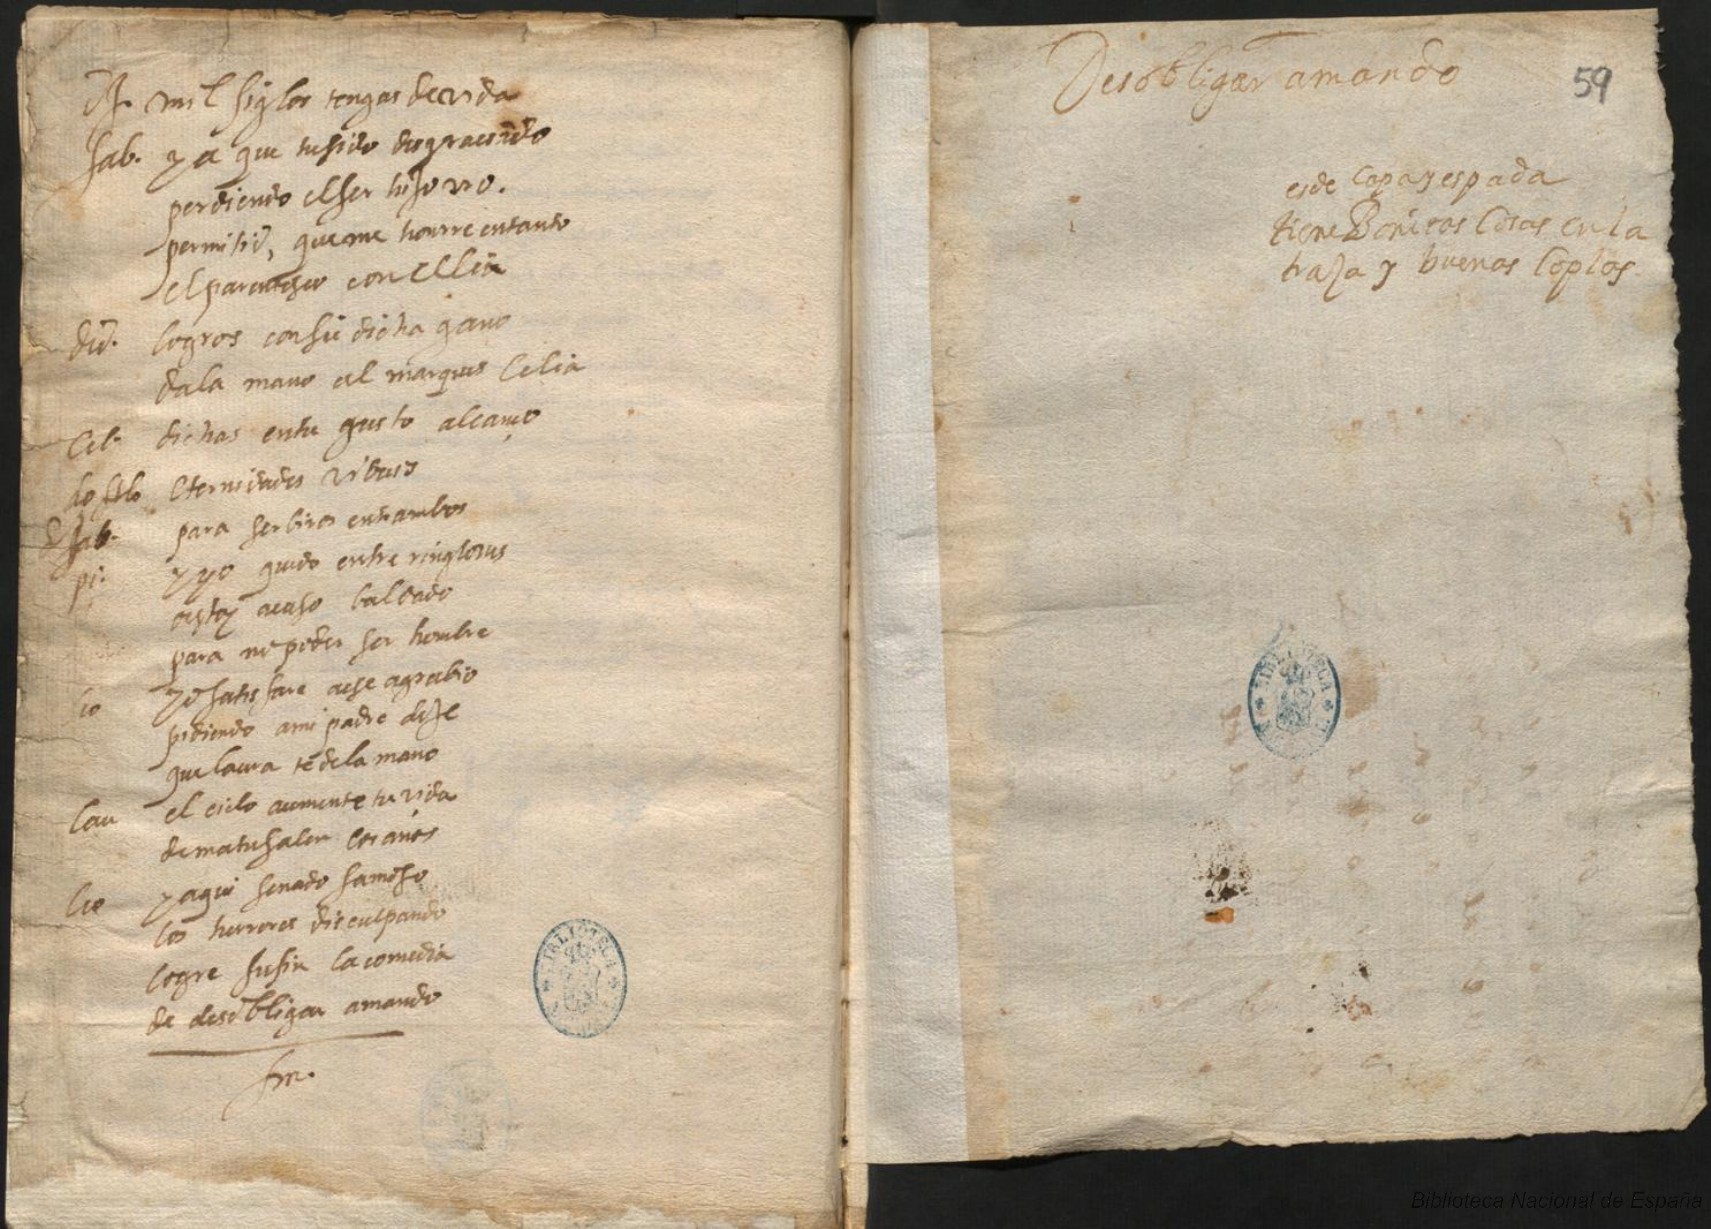 mil siglos tengas de vida
fab. ya que he sido desgraciado
perdiendo el ser hijo vro.
permitid, que me honrre en tanto
el parentesco con Celia
did. logros con su dicha gano
da la mano al marques Celia
Cel. dichas en tu gusto alcanço
eternidades vibais
fab. para serbiros entrambos
pi. y yo quedo entre ringlones
estoy acaso baldado
para no poder ser hombre
yo satisfare ese agrabio
pidiendo a mi padre deje
que laura te de la mano
lau el cielo aumente tu vida
de matusalen los años
y aqui senado famoso
los herrores disculpando
logre su fin la comedia
de desobligar amando
fin.
Desobligar amando
59
es de capa y espada
tiene Bonitas Cosas en la
traza y buenas Coplas.
BIBLIOTECA
BIBLIOTECA
Biblioteca Nacional de España